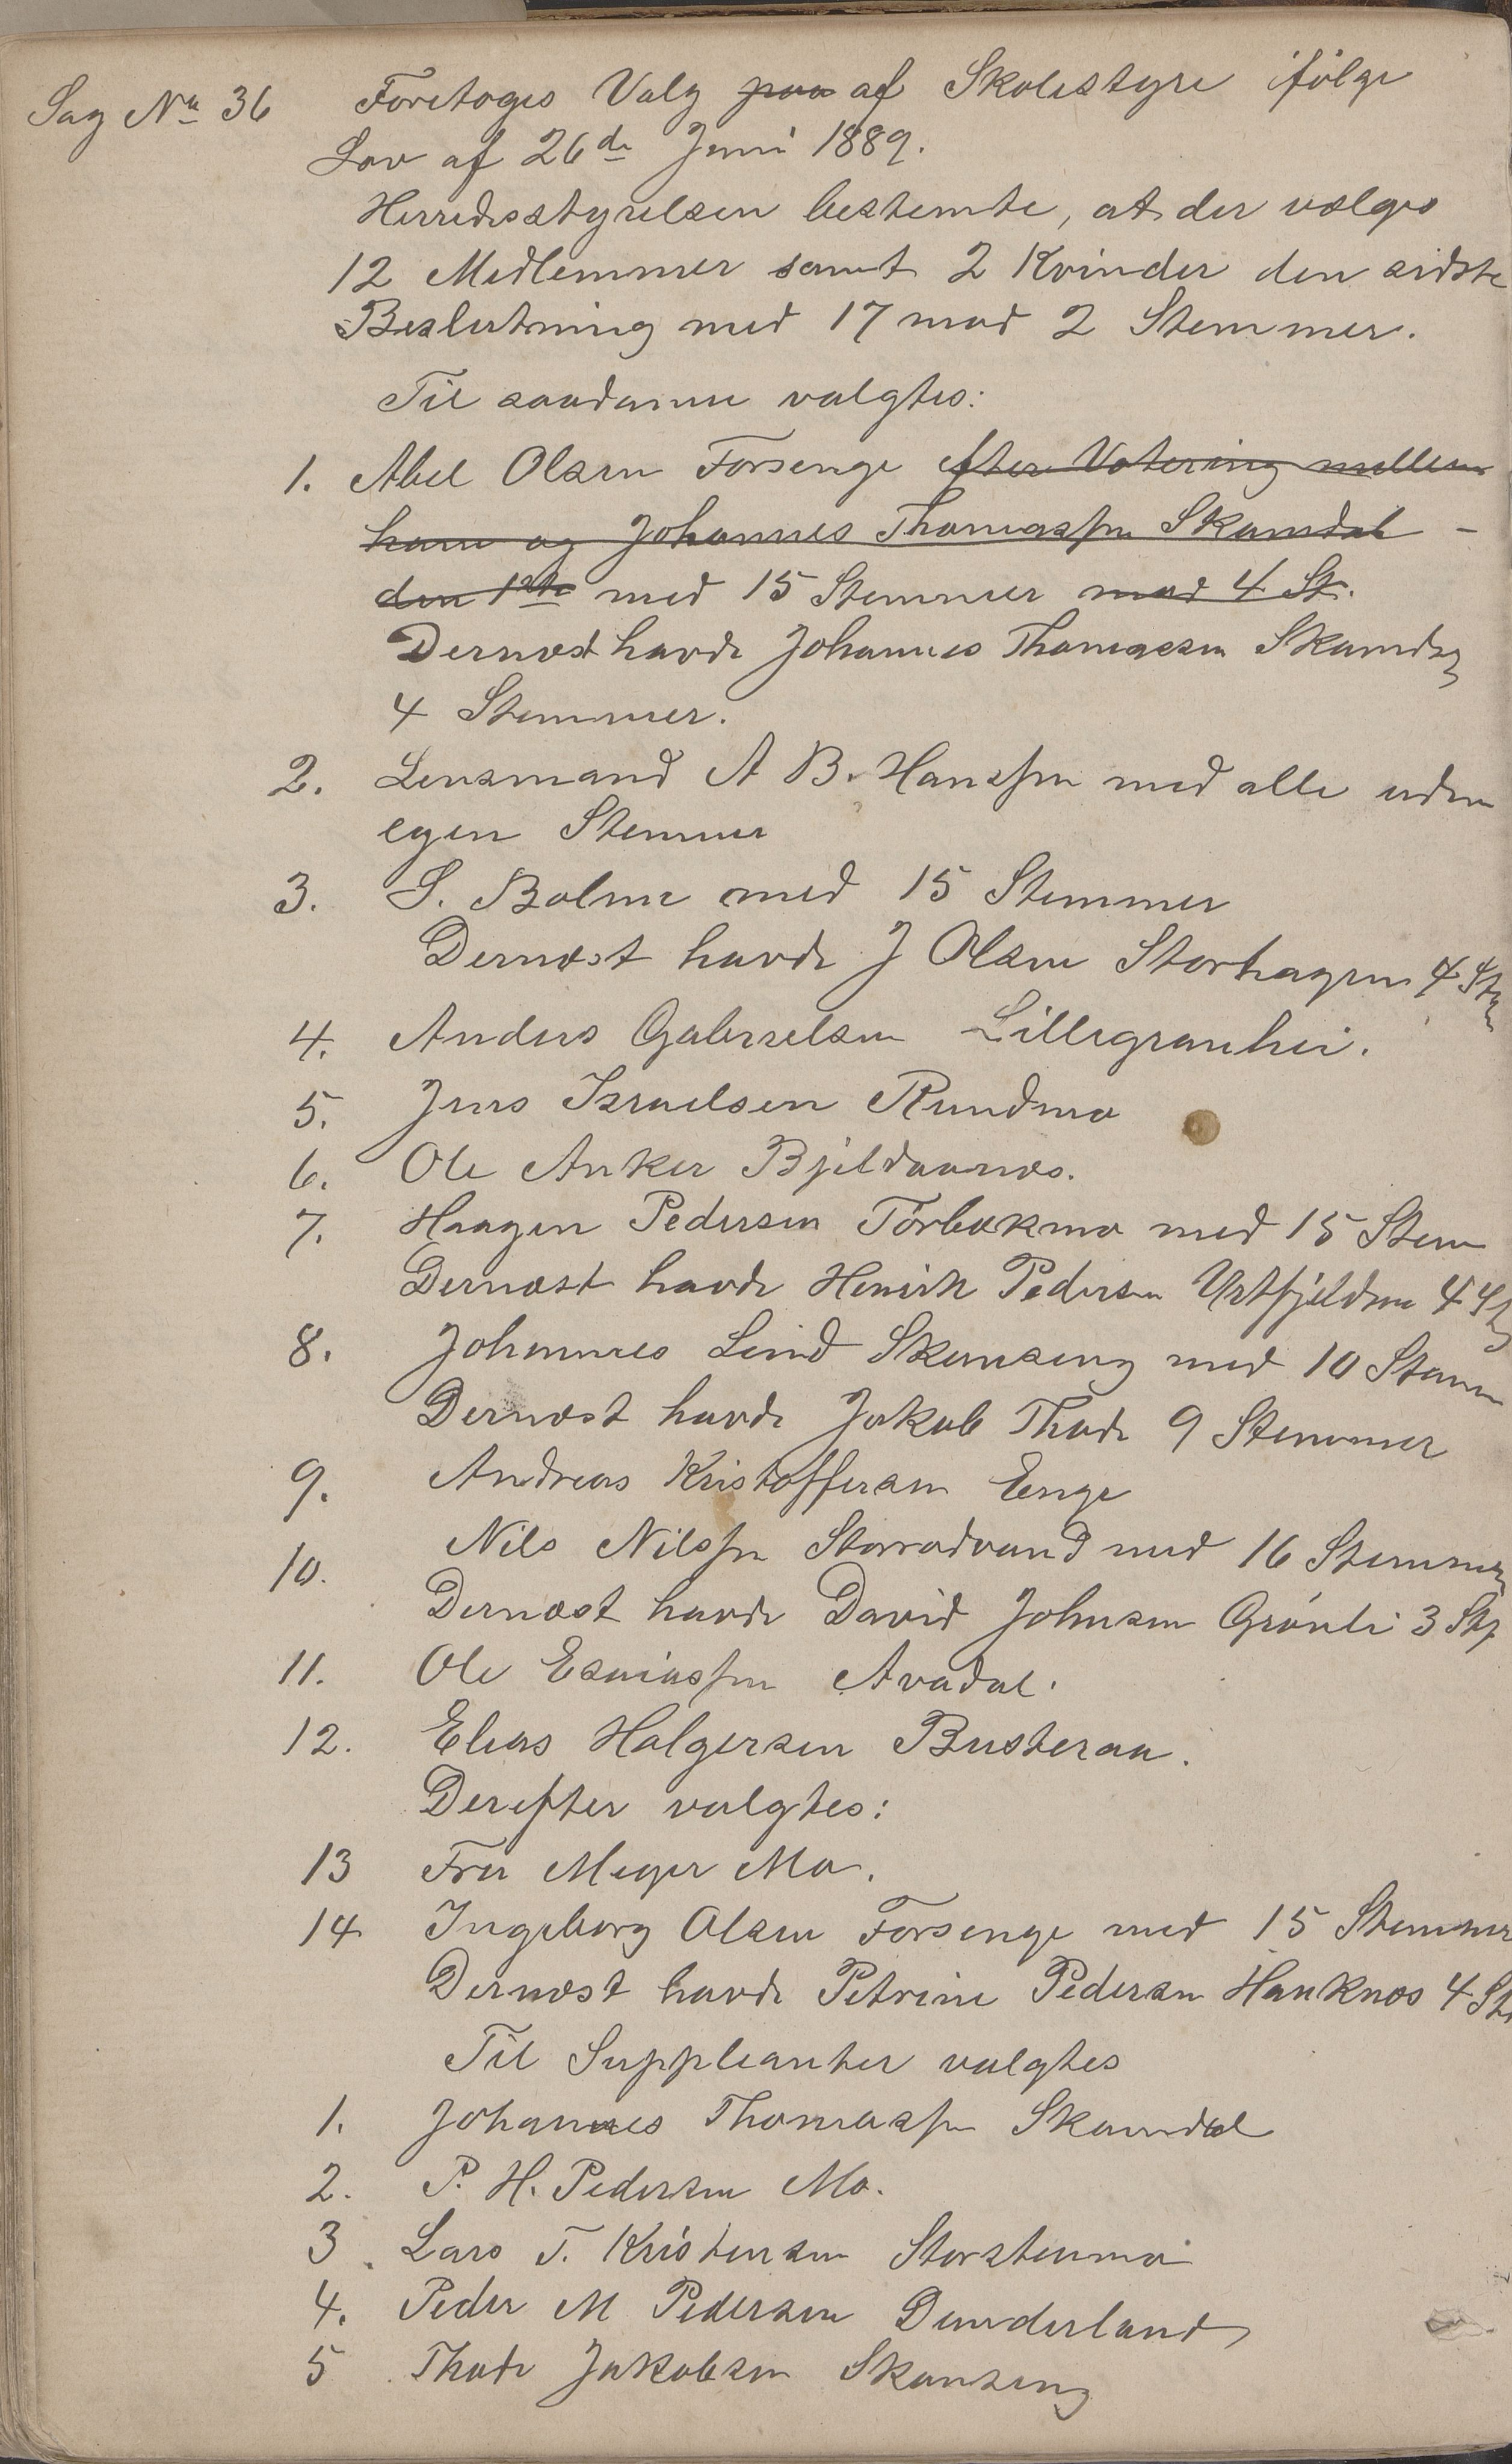 Sag No 36 Foretoges Valg paa af Skolestyre ifølge
Lov af 26de Juni 1889.
Herredsstyrelsen bestemte, at der vælges
12 Medlemmer samt 2 Kvinder den sidste
Beslutning med 17 mod 2 Stemmer.
Til saadanne valgtes:
1. Abel Olsen Forsenge efter Votering mellem
ham og Johannes Thomassen Skamdal –
den 1ste med 15 Stemmer mod 4 St.
Dernæst havde Johannes Thomassen Skamdal
4 Stemmer.
2. Lensmand A B. Hanssen med alle uden
egen Stemmer
3. S. Bolme med 15 Stemmer
Dernæst havde J Olsen Storhagen 4 St
4. Anders Gabrielsen Lillegranhei.
5. Jens Israelsen Rundmo
6. Ole Anker Bjeldaanæs.
7. Haagen Pedersen Törbækmo med 15 Stem
Dernæst havde Henrik Pedersen Urtfjeldmo 4 St
8. Johannes Lind Skanseng med 10 Stemm
Dernæst havde Jakob Thode 9 Stemmer
9. Andreas Kristoffersen Enge
10. Nils Nilssen Storradvand med 16 Stemmer
Dernæst havde David Johnsen Grönli 3 St
11. Ole Esaiassen Avadal.
12. Elias Holgersen Busteraa.
Derefter valgtes:
13 Fru Meyer Mo.
14 Ingeborg Olsen Forsenge med 15 Stemmer
Dernæst havde Petrine Pedersen Hauknæs 4 St
Til Suppleanter valgtes
1. Johannes Thomassen Skamdal
2. P. H. Pedersen Mo.
3. Lars T. Kristensen Storstenmo
4. Peder M Pedersen Dunderland
5 Thode Jakobsen Skanseng